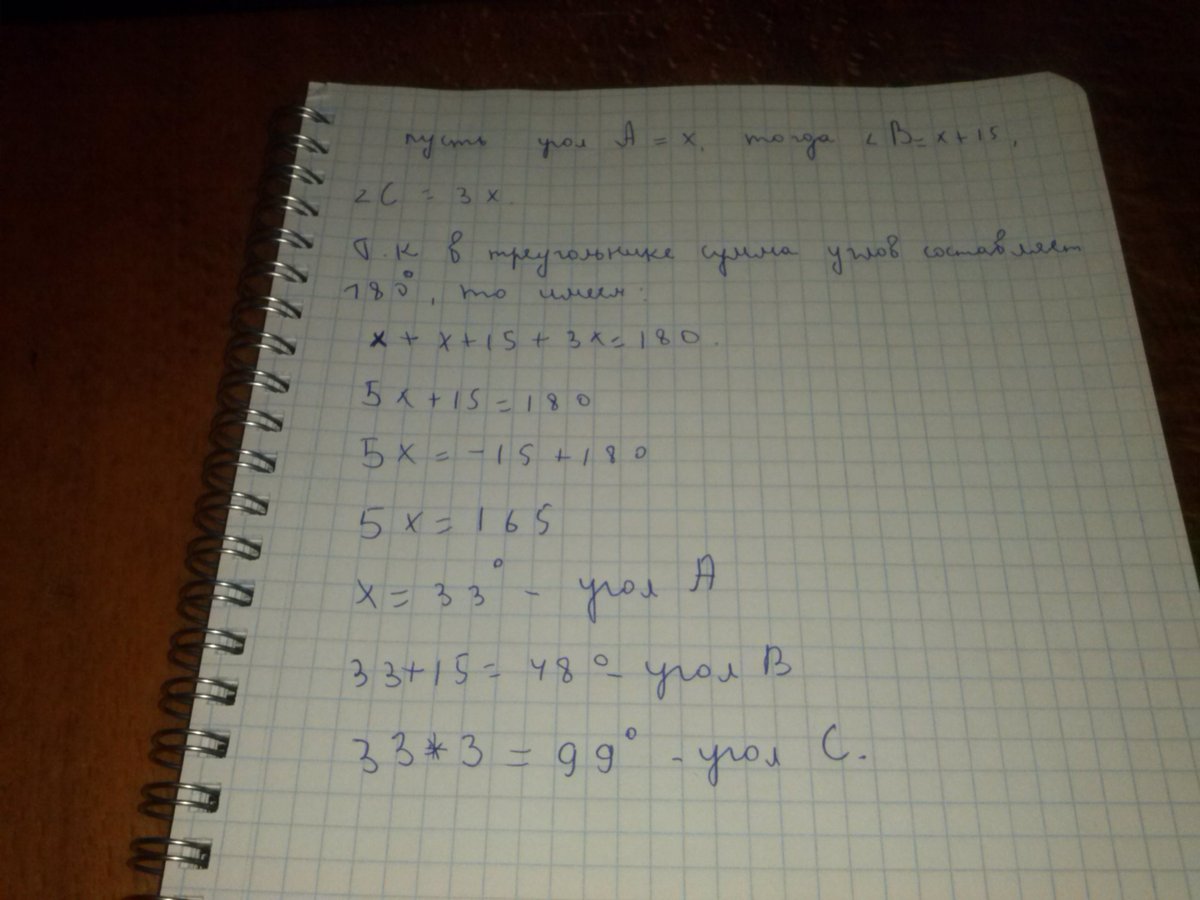 пусть угол A = x, тогда ∠B = x+15,
∠C = 3x.
Т.К в треугольнике сумма углов составляет
180°, то имеем:
x + x+15 + 3x = 180.
5x+15 = 180
5x = -15 + 180
5x = 165
x = 33° - угол A
33+15 = 48° - угол B
33*3 = 99° - угол C.